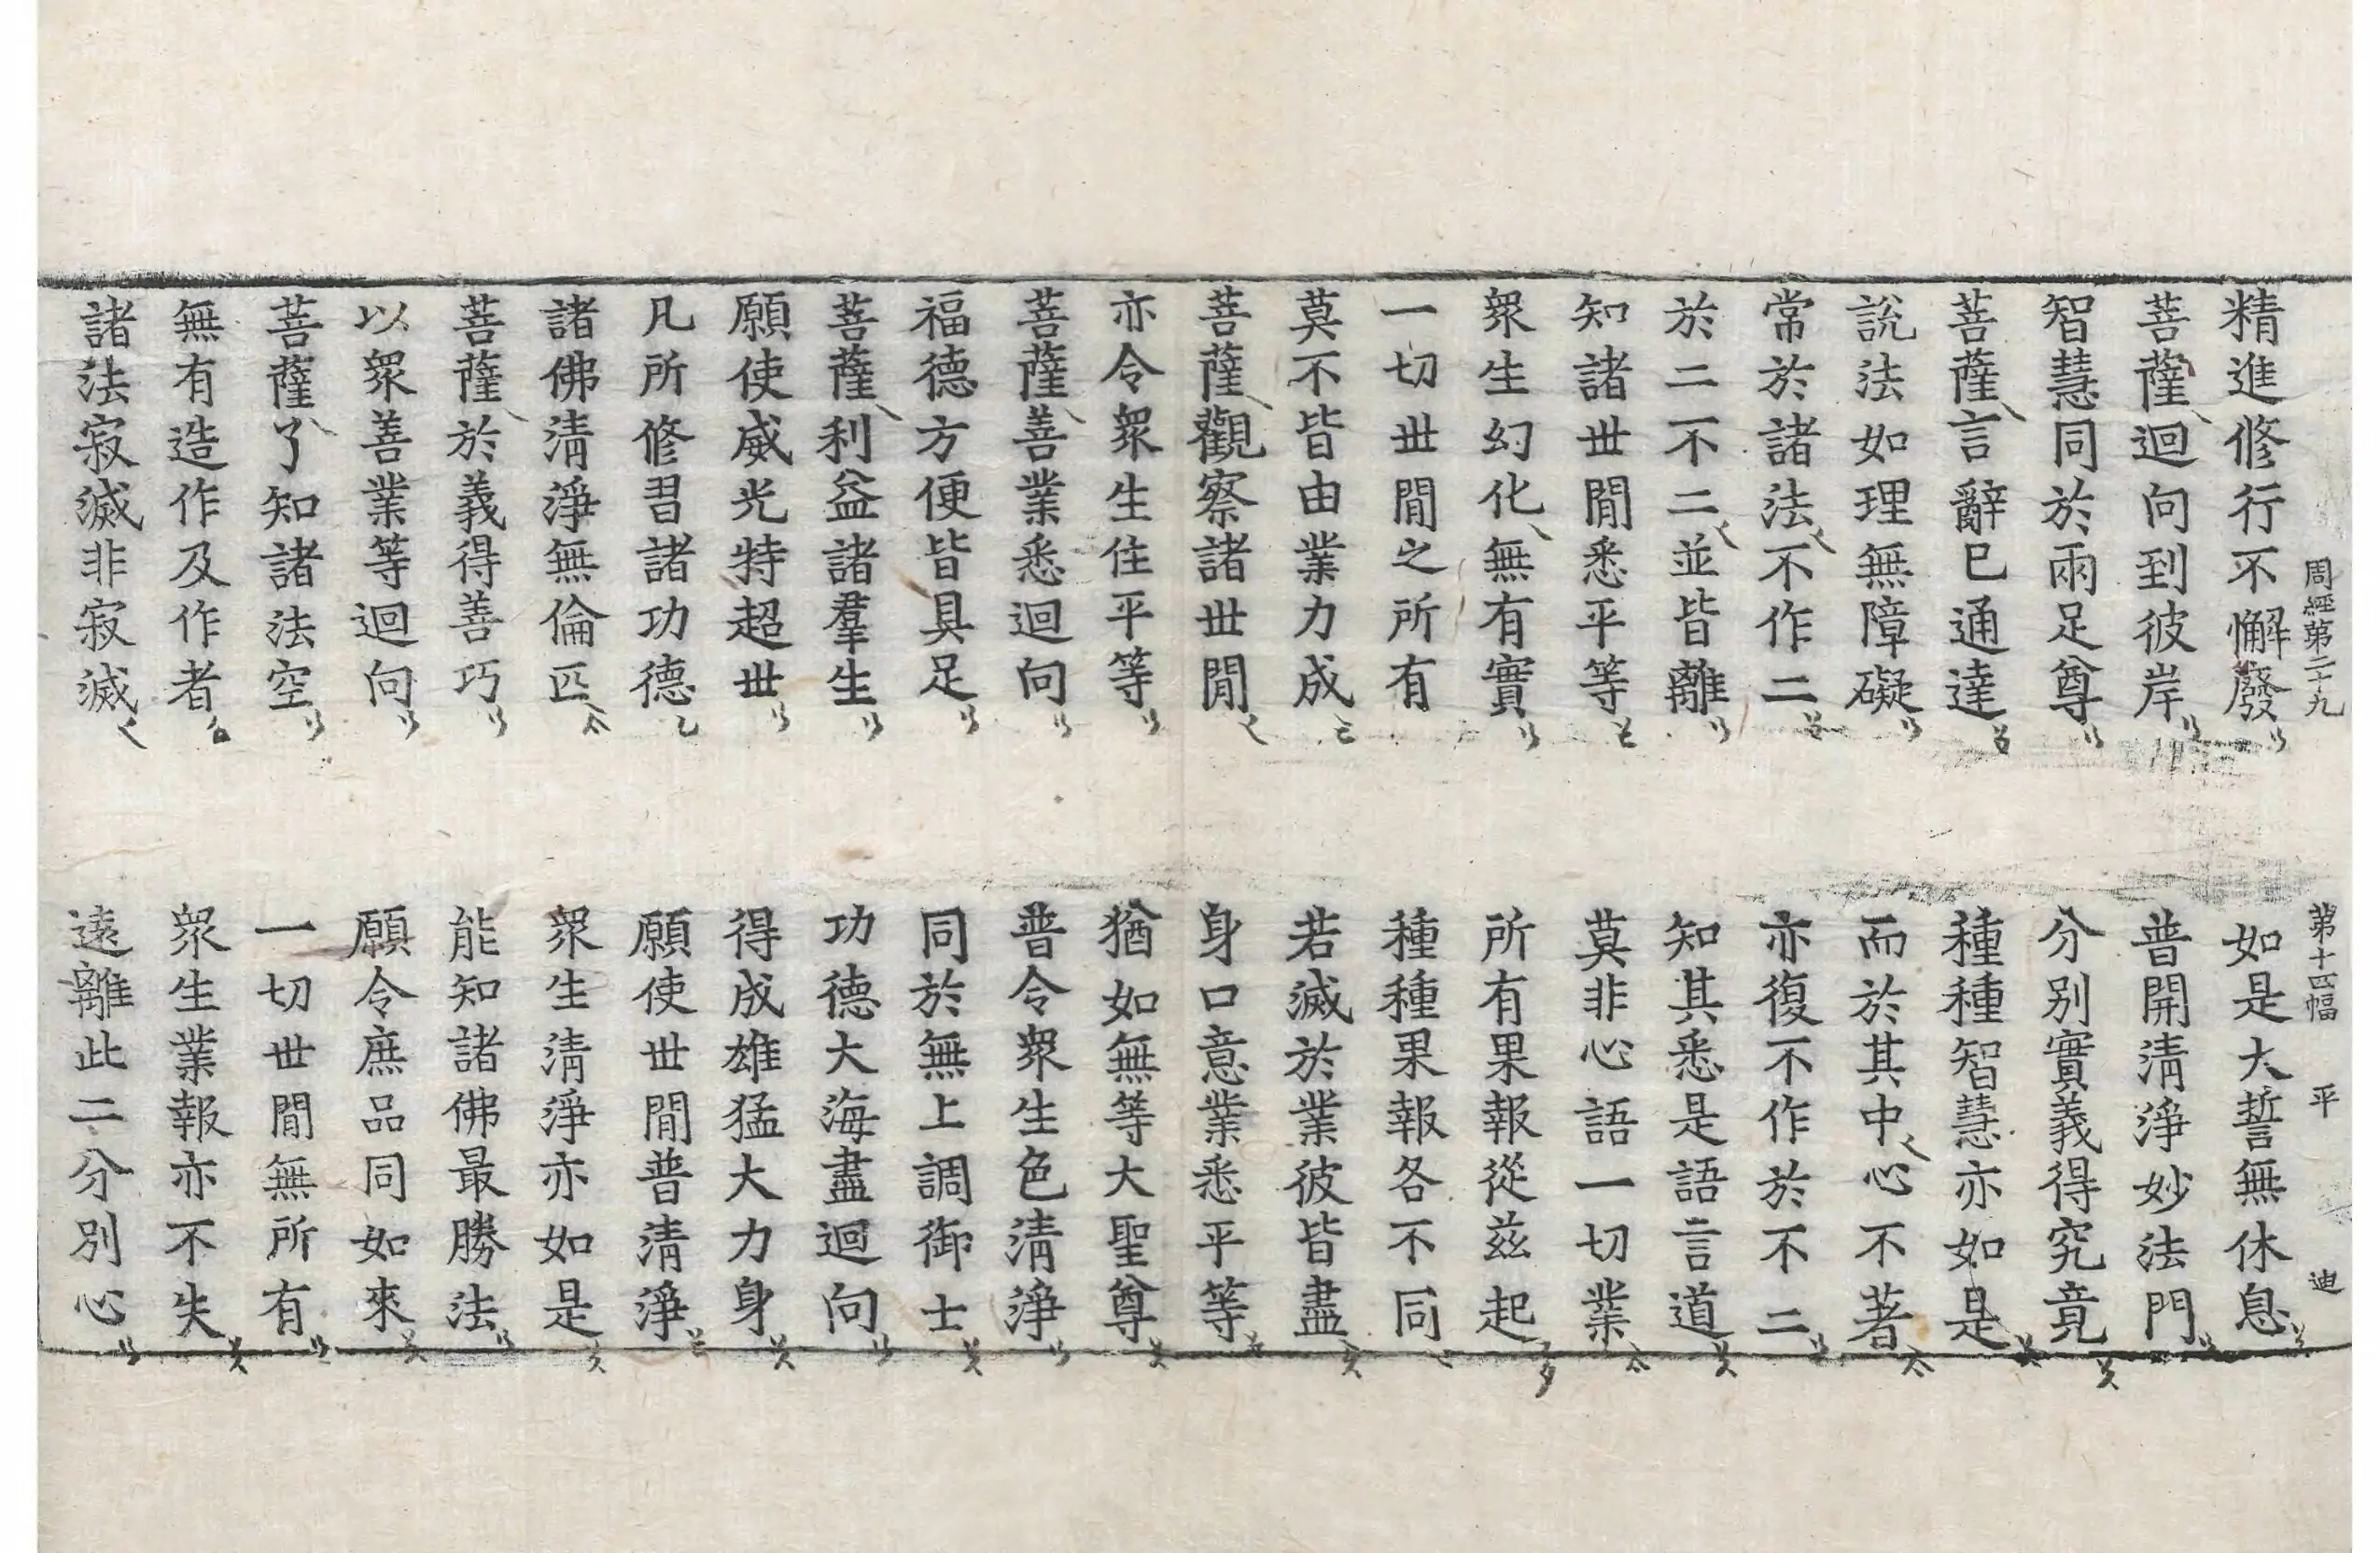 周經第二十九 第十四幅 平 迪
精進修行不懈廢 如是大誓無休息
菩薩迴向到彼岸 普開淸淨妙法門
智慧同於兩足尊 分別實義得究竟
菩薩言辭已通達 種種智慧亦如是
說法如理無障礙 而於其中心不著
常於諸法不作二 亦復不作於不二
於二不二並皆離 知其悉是語言道
知諸世閒悉平等 莫非心語一切業
衆生幻化無有實 所有果報從茲起
一切世閒之所有 種種果報各不同
莫不皆由業力成 若滅於業彼皆盡
菩薩觀察諸世閒 身口意業悉平等
亦令衆生住平等 猶如無等大聖尊
菩薩善業悉迴向 普令衆生色淸淨
福德方便皆具足 同於無上調御士
菩薩利益諸羣生 功德大海盡迴向
願使威光特超世 得成雄猛大力身
凡所修習諸功德 願使世閒普淸淨
諸佛淸淨無倫匹 衆生淸淨亦如是
菩薩於義得善巧 能知諸佛最勝法
以衆善業等迴向 願令庶品同如來
菩薩了知諸法空 一切世閒無所有
無有造作及作者 衆生業報亦不失
諸法寂滅非寂滅 遠離此二分別心